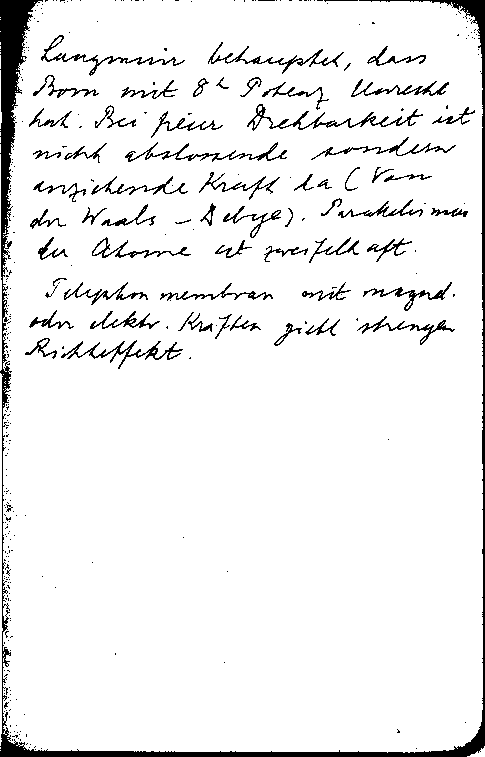 Langmuir behauptet, dass
Born mit 8ᵗ Potenz Unrecht
hat. Bei freier Drehbarkeit ist
nicht abstossende sondern
anziehende Kraft da (Van
der Waals – Debye). Parallelismus
der Atome ist zweifelhaft.
Telephonmembran mit magnet.
oder elektr. Kräften giebt strengen
Richteffekt.